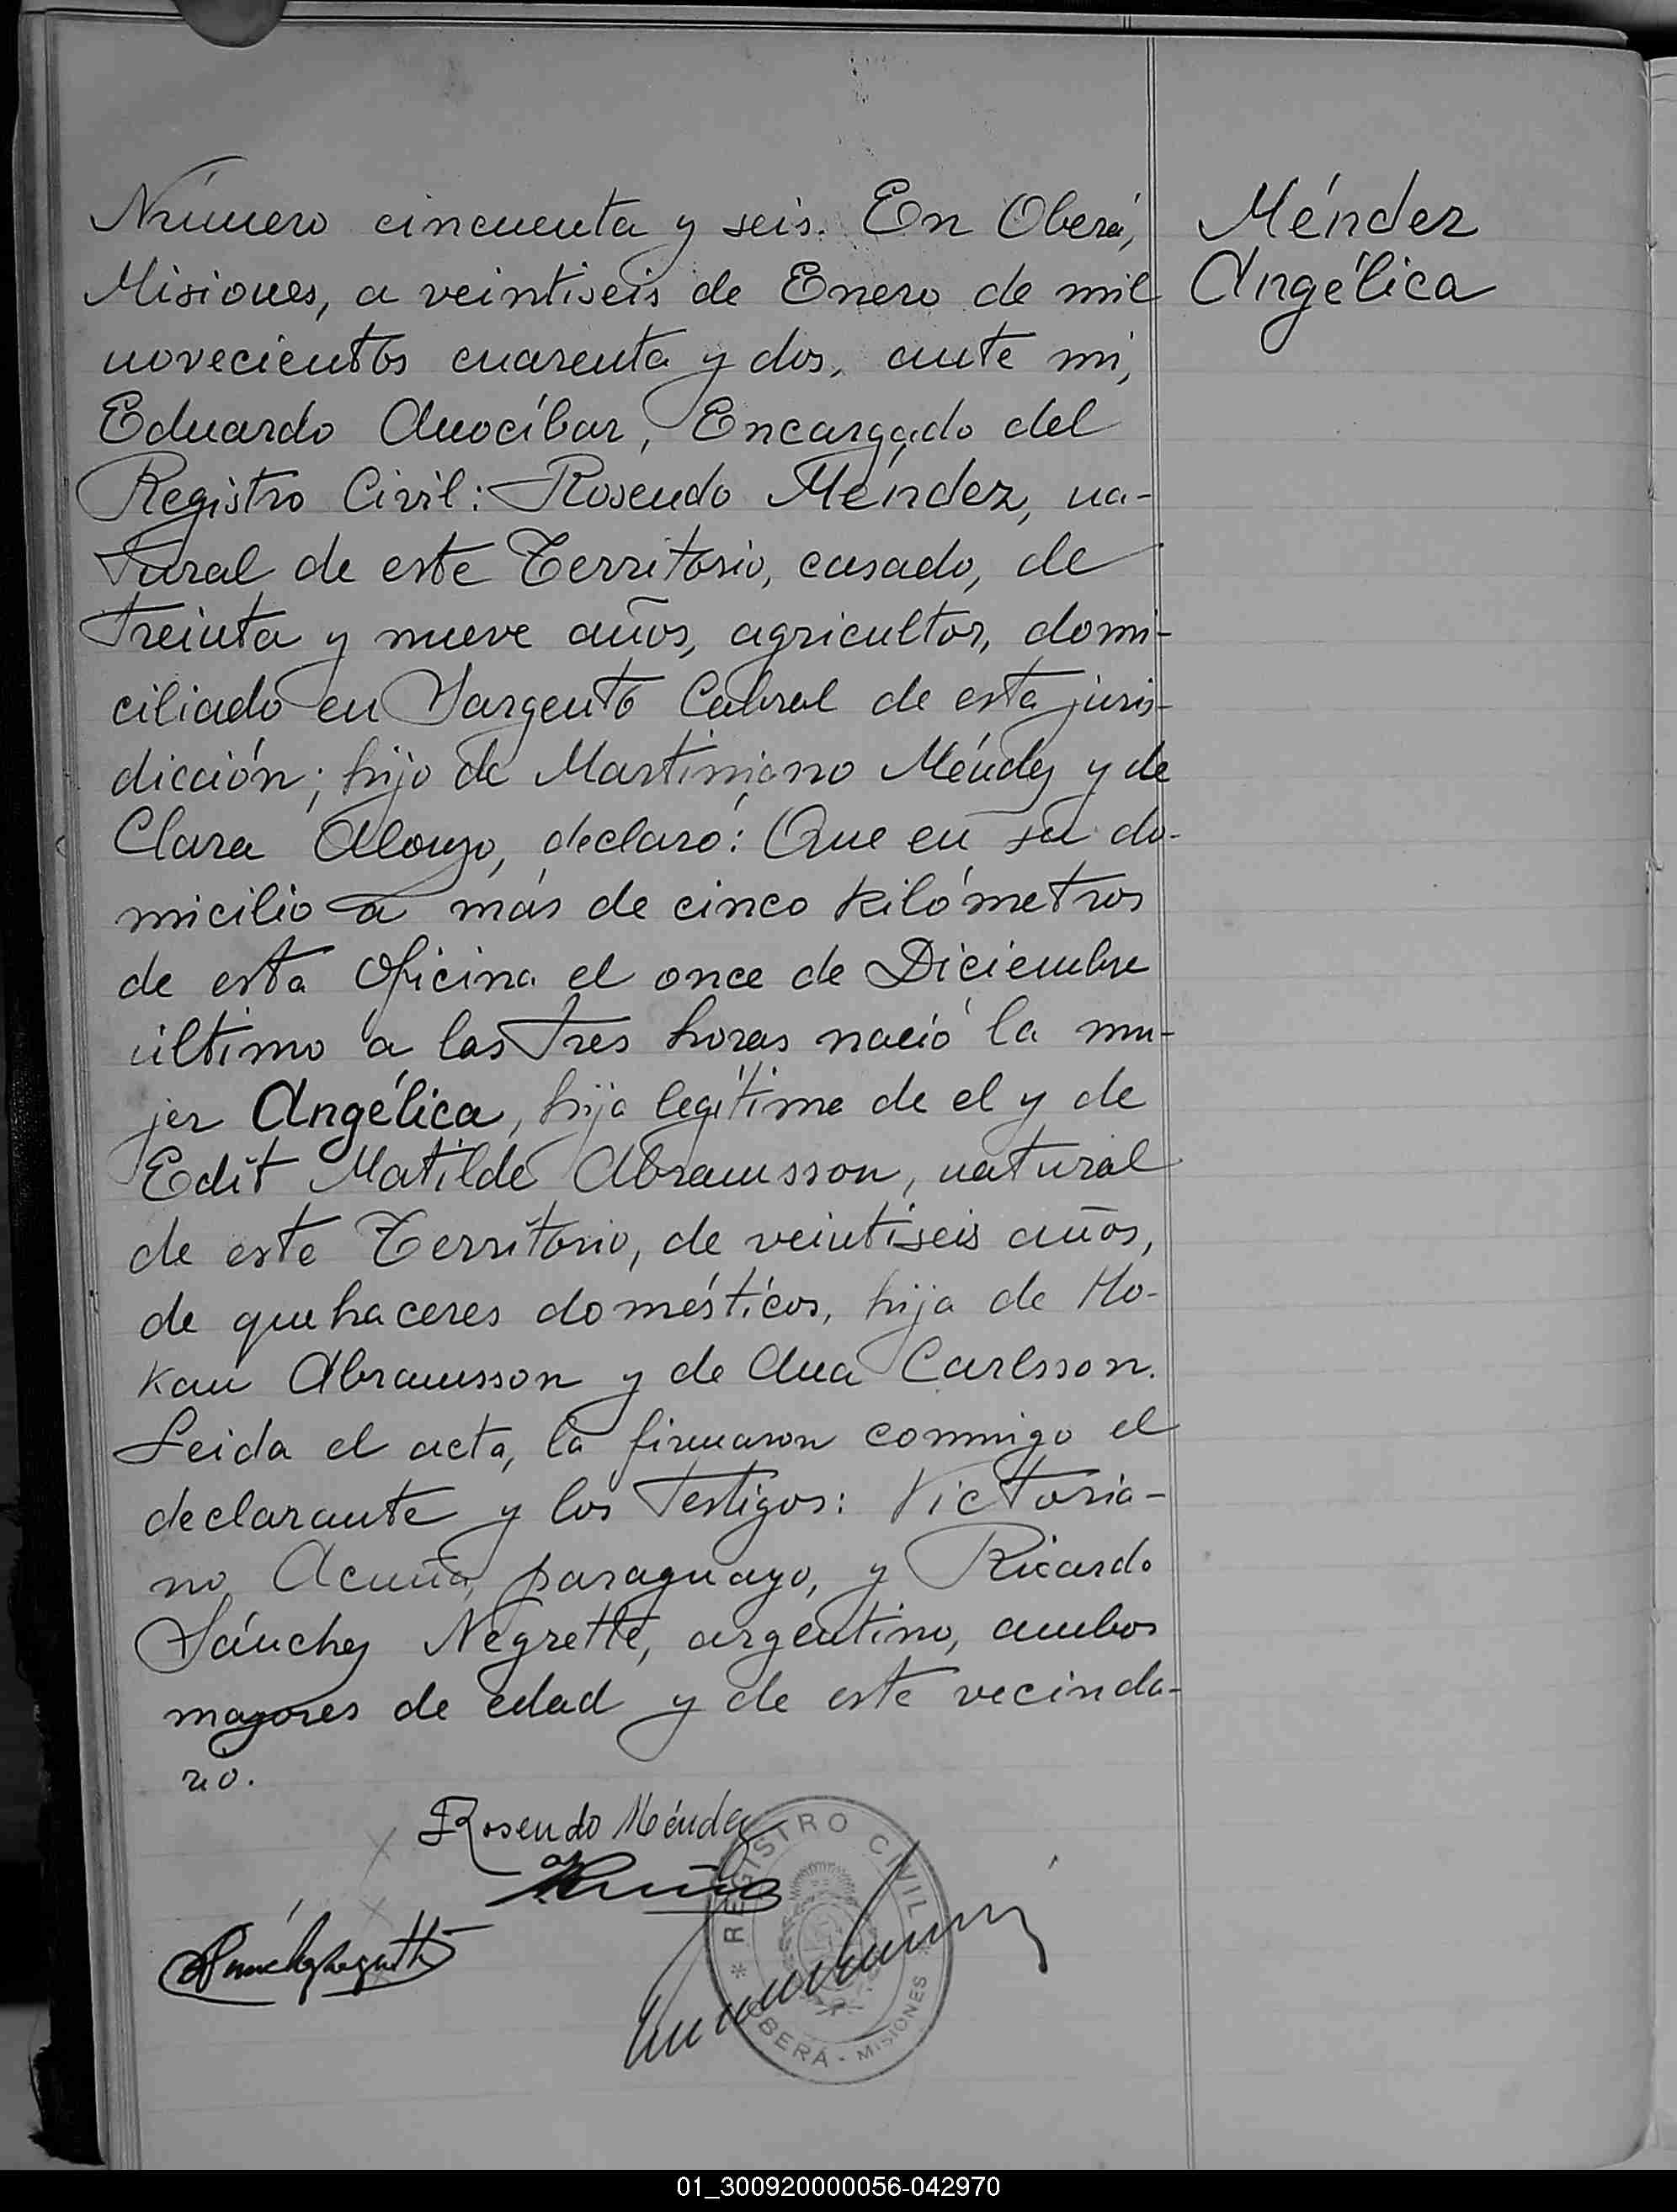 Número cincuenta y seis. En Oberá,
Misiones, a veintiseis de Enero de mil
novecientos cuarenta y dos, ante mi,
Eduardo Anocíbar, Encargado del
Registro Civil: Rosendo Méndez, na-
tural de este Territorio, casado, de
treinta y nueve años, agricultor, domi-
ciliado en Sargento Cabral de esta juris-
dicción; hijo de Martiniano Méndez y de
Clara Alonzo, declaró: Que en su do-
micilio a más de cinco kilómetros
de esta Oficina el once de Diciembre
último a las tres horas nació la mu-
jer Angélica, hija legítima de el y de
Edit Matilde Abramsson, natural
de este Territorio, de veintiseis años,
de quehaceres domésticos, hija de Ho-
kan Abramsson y de Ana Carlsson.
Leida el acta, la firmaron conmigo el
declarante y los testigos: Victoria-
no Acuña, paraguayo, y Ricardo
Sánchez Negrette, argentino, ambos
mayores de edad y de este vecinda-
rio.
Méndez
Angélica
Rosendo Méndez
REGISTRO CIVIL
OBERÁ - MISIONES
01_300920000056-042970